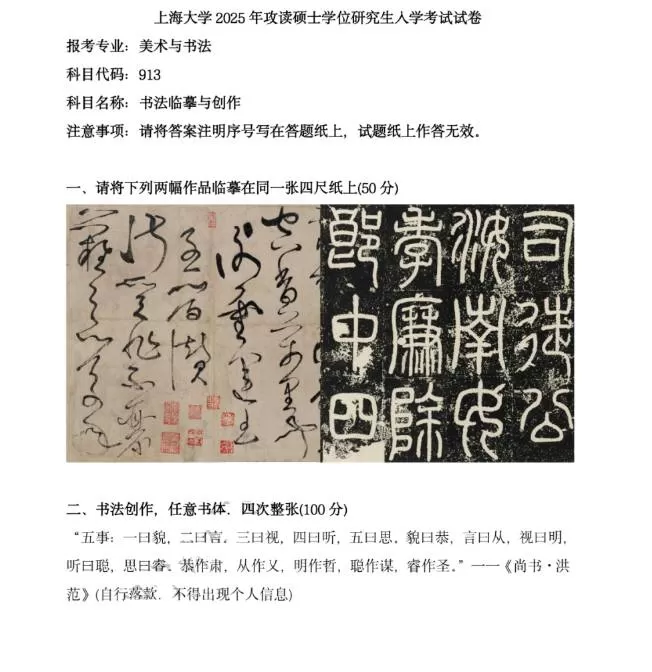 上海大学 2025 年攻读硕士学位研究生入学考试试卷
报考专业：美术与书法
科目代码：913
科目名称：书法临摹与创作
注意事项：请将答案注明序号写在答题纸上，试题纸上作答无效。
一、请将下列两幅作品临摹在同一张四尺纸上(50 分)
司徒公
汝南安
孝廉除
郎中四
二、书法创作，任意书体．四次整张(100 分)
“五事：一曰貌，二曰言．三曰视，四曰听，五曰思．貌曰恭，言曰从，视曰明，
听曰聪，思曰睿．恭作肃，从作乂，明作哲，聪作谋，睿作圣。”一一《尚书·洪
范》(自行落款．不得出现个人信息)